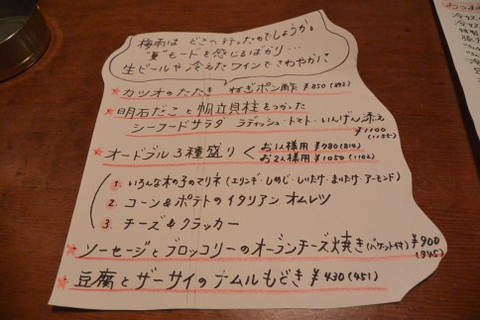 梅雨は どこへ行ったのでしょうか。
"夏"モードを感じるばかり…
生ビールや冷えたワインでさわやかに
★カツオのたたき ねぎポン酢 ¥850(892)
★明石だこと帆立貝柱をつかった
シーフードサラダ ラディッシュ・トマト・いんげん添え
¥1100
(1155)
★オードブル3種盛り < お1人様用 ¥780(814)
お2人様用 ¥1050(1102)
1. いろんな木の子のマリネ (エリンギ・しめじ・しいたけ・まいたけ・アーモンド)
2. コーン&ポテトのイタリアン オムレツ
3. チーズ&クラッカー
★ソーセージとブロッコリーのオーブンチーズ焼き(バケット付) ¥900
(945)
★豆腐とザーサイのナムルもどき ¥430(451)